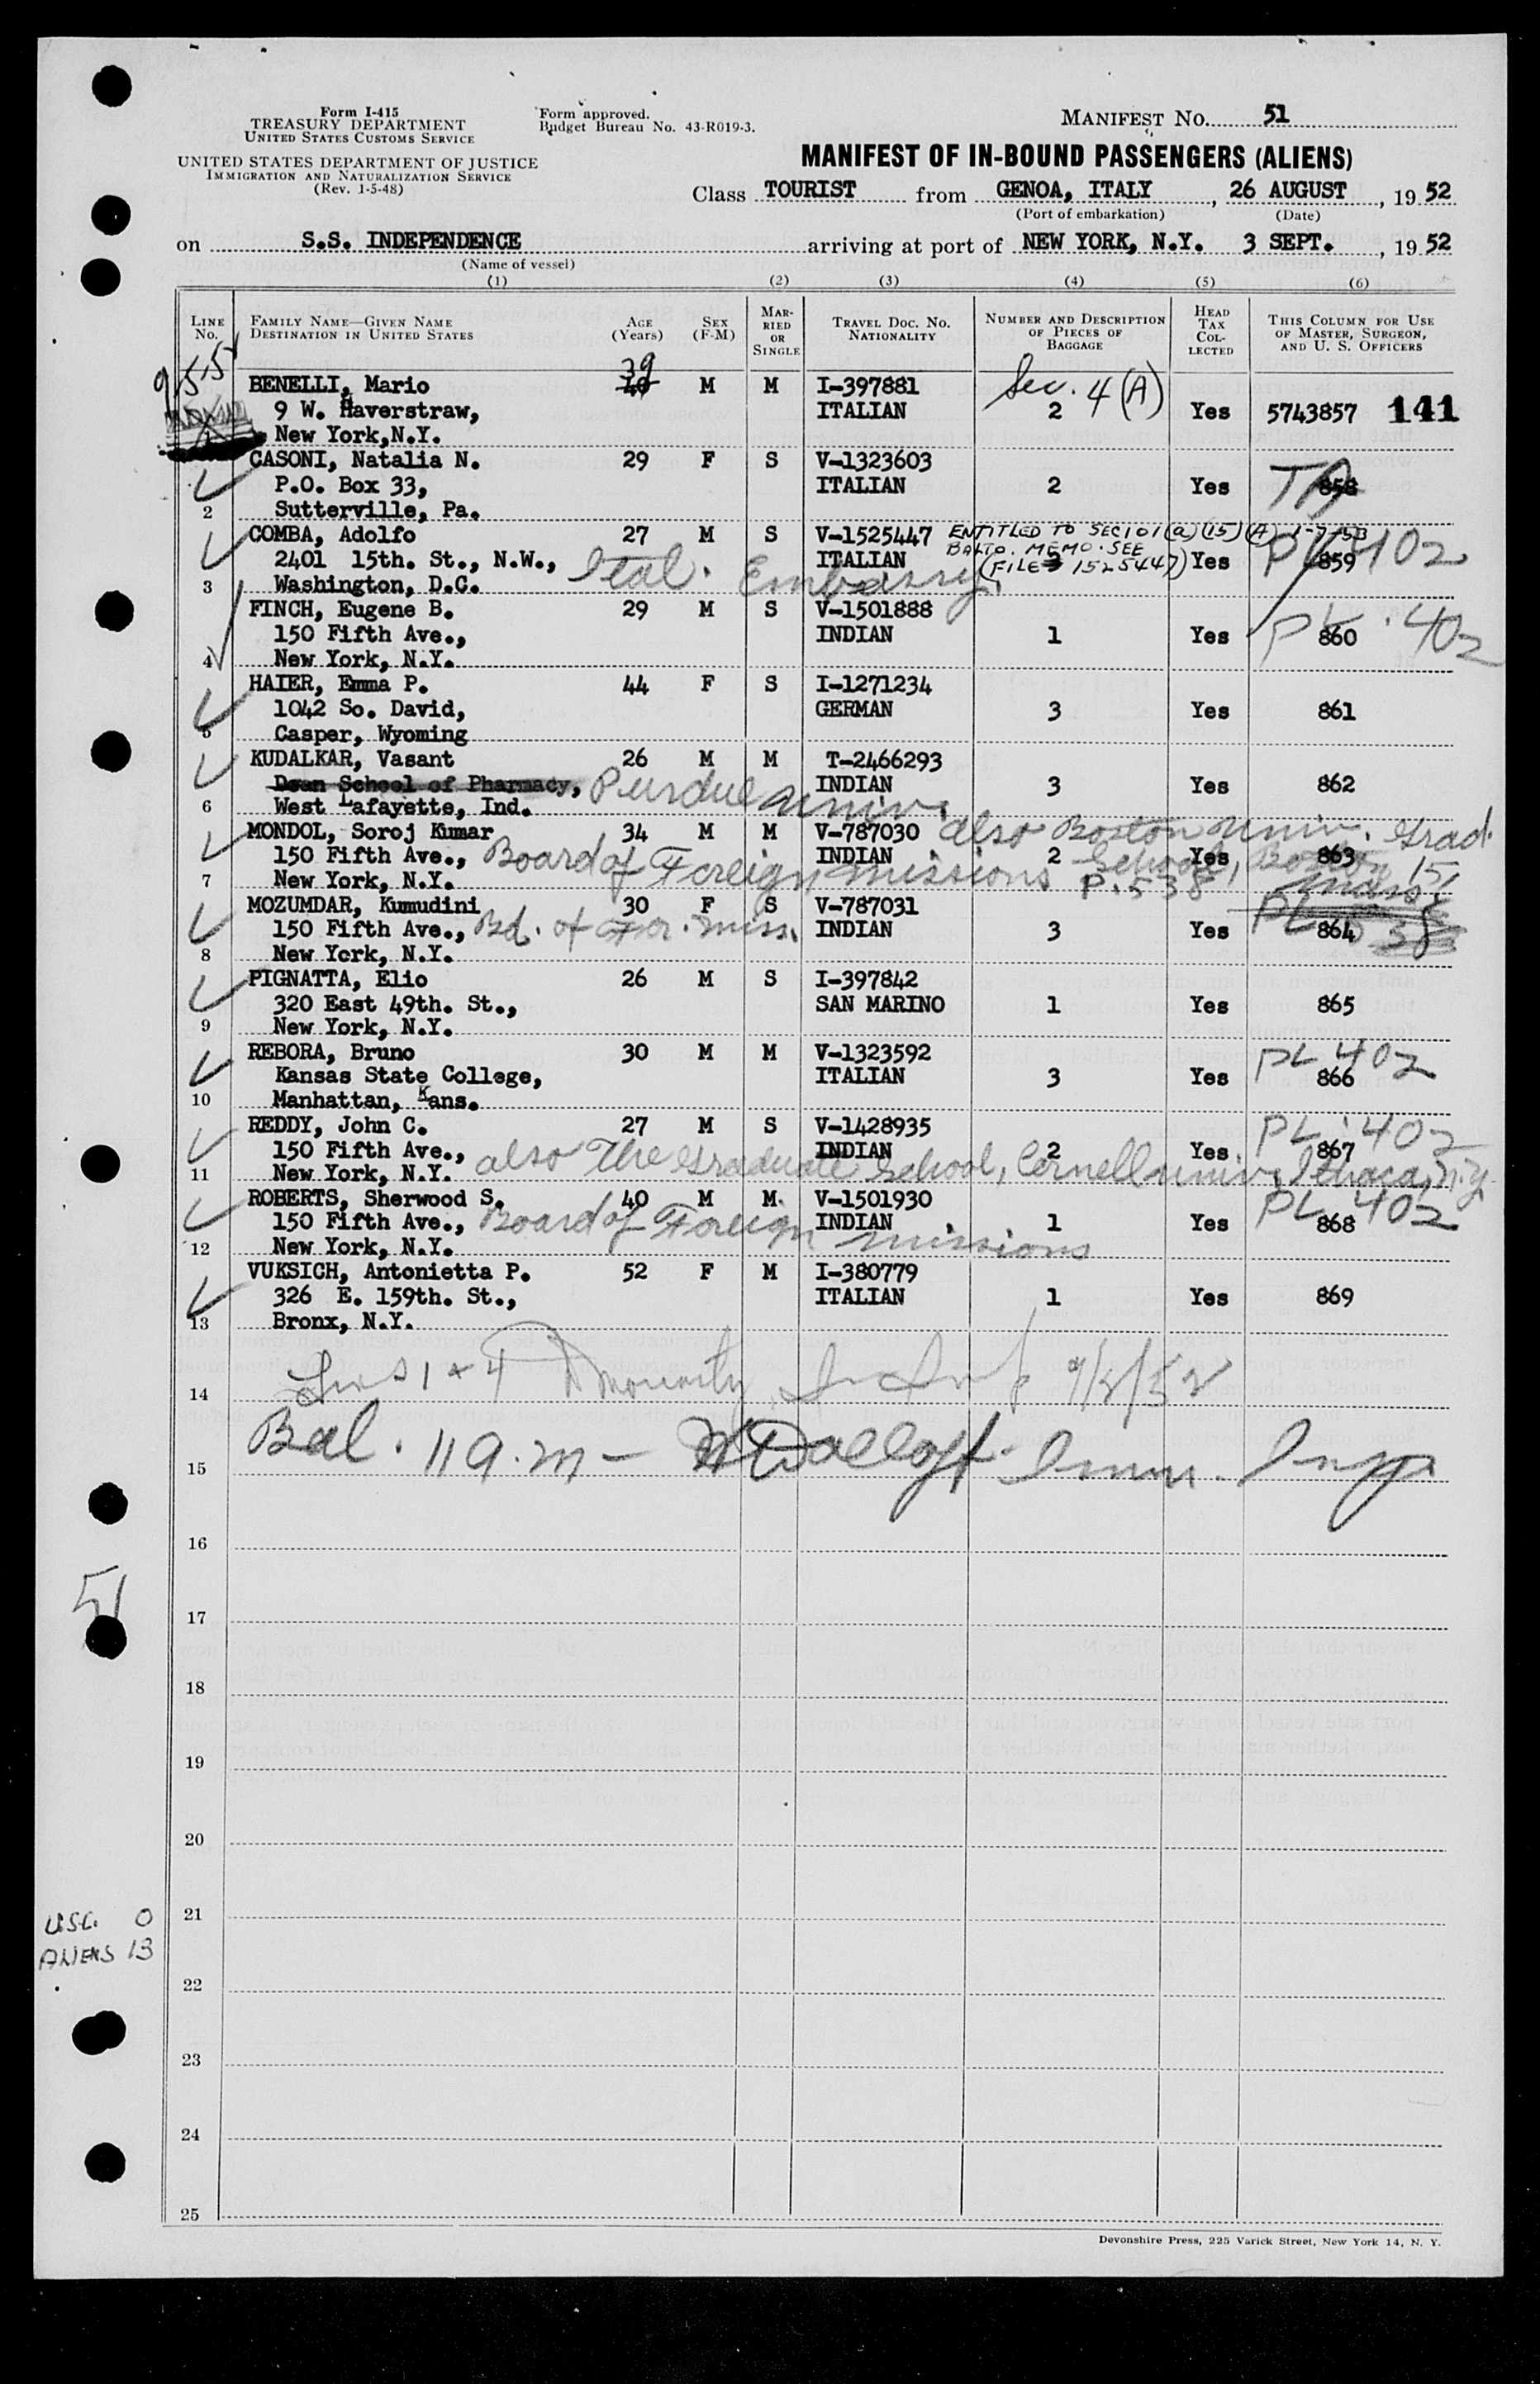 Form I-415
TREASURY DEPARTMENT
UNITED STATES CUSTOMS SERVICE
UNITED STATES DEPARTMENT OF JUSTICE
IMMIGRATION AND NATURALIZATION SERVICE
(Rev. 1-5-48)
Form approved.
Budget Bureau No. 43-R019-3.
MANIFEST NO. 51
MANIFEST OF IN-BOUND PASSENGERS (ALIENS)
Class TOURIST from GENOA, ITALY, 26 AUGUST, 19 52
(Port of embarkation) (Date)
on S.S. INDEPENDENCE arriving at port of NEW YORK, N.Y. 3 SEPT., 19 52
(Name of vessel)
(1) (2) (3) (4) (5) (6)
LINE No. FAMILY NAME—GIVEN NAME DESTINATION IN UNITED STATES AGE (Years) SEX (F-M) MARRIED OR SINGLE TRAVEL DOC. NO. NATIONALITY NUMBER AND DESCRIPTION OF PIECES OF BAGGAGE HEAD TAX COLLECTED THIS COLUMN FOR USE OF MASTER, SURGEON, AND U. S. OFFICERS
955
39
BENELLI, Mario 40 M M I-397881 Sec. 4(A)
9 W. Haverstraw, ITALIAN 2 Yes 5743857 141
1 New York,N.Y.
CASONI, Natalia N. 29 F S V-1323603
P.O. Box 33, ITALIAN 2 Yes 858
2 Sutterville, Pa.
COMBA, Adolfo 27 M S V-1525447 ENTITLED TO SEC 101(a)(15)(A) 1-7-53
BALTO. MEMO. SEE
2401 15th. St., N.W., Ital. Embassy ITALIAN 3 (FILE 1525447) Yes 859 PL 402
3 Washington, D.C.
FINCH, Eugene B. 29 M S V-1501888
150 Fifth Ave., INDIAN 1 Yes 860 PL 402
4 New York, N.Y.
HAIER, Emma P. 44 F S I-1271234
1042 So. David, GERMAN 3 Yes 861
5 Casper, Wyoming
KUDALKAR, Vasant 26 M M T-2466293
Dean School of Pharmacy, Purdue Univ. INDIAN 3 Yes 862
6 West Lafayette, Ind.
MONDOL, Soroj Kumar 34 M M V-787030 also Boston Univ. Grad.
150 Fifth Ave., Board of Foreign Missions INDIAN 2 School, Boston 15, Mass Yes 863
7 New York, N.Y. P. 538
MOZUMDAR, Kumudini 30 F S V-787031
150 Fifth Ave., Bd. of For. Miss. INDIAN 3 Yes 864 PL
8 New York, N.Y.
PIGNATTA, Elio 26 M S I-397842
320 East 49th. St., SAN MARINO 1 Yes 865
9 New York, N.Y.
REBORA, Bruno 30 M M V-1323592 PL 402
Kansas State College, ITALIAN 3 Yes 866
10 Manhattan, Kans.
REDDY, John C. 27 M S V-1428935 PL. 402
150 Fifth Ave., INDIAN 2 Yes 867
11 New York, N.Y. also The Graduate School, Cornell Univ. Ithaca, N.Y.
ROBERTS, Sherwood S. 40 M M V-1501930 PL 402
150 Fifth Ave., Board of Foreign Missions INDIAN 1 Yes 868
12 New York, N.Y.
VUKSICH, Antonietta P. 52 F M I-380779
326 E. 159th. St., ITALIAN 1 Yes 869
13 Bronx, N.Y.
14 Lines 1 + 4 9/3/52
15 Bal. 11 a.m – Imm. Insp
16
51
17
18
19
20
21
USC. 0
ALIENS 13
22
23
24
25
Devonshire Press, 225 Varick Street, New York 14, N. Y.